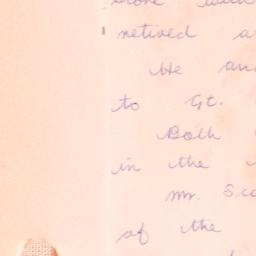 retired a
He an
to Gt.
Both
in the
Mr. Sco
of the